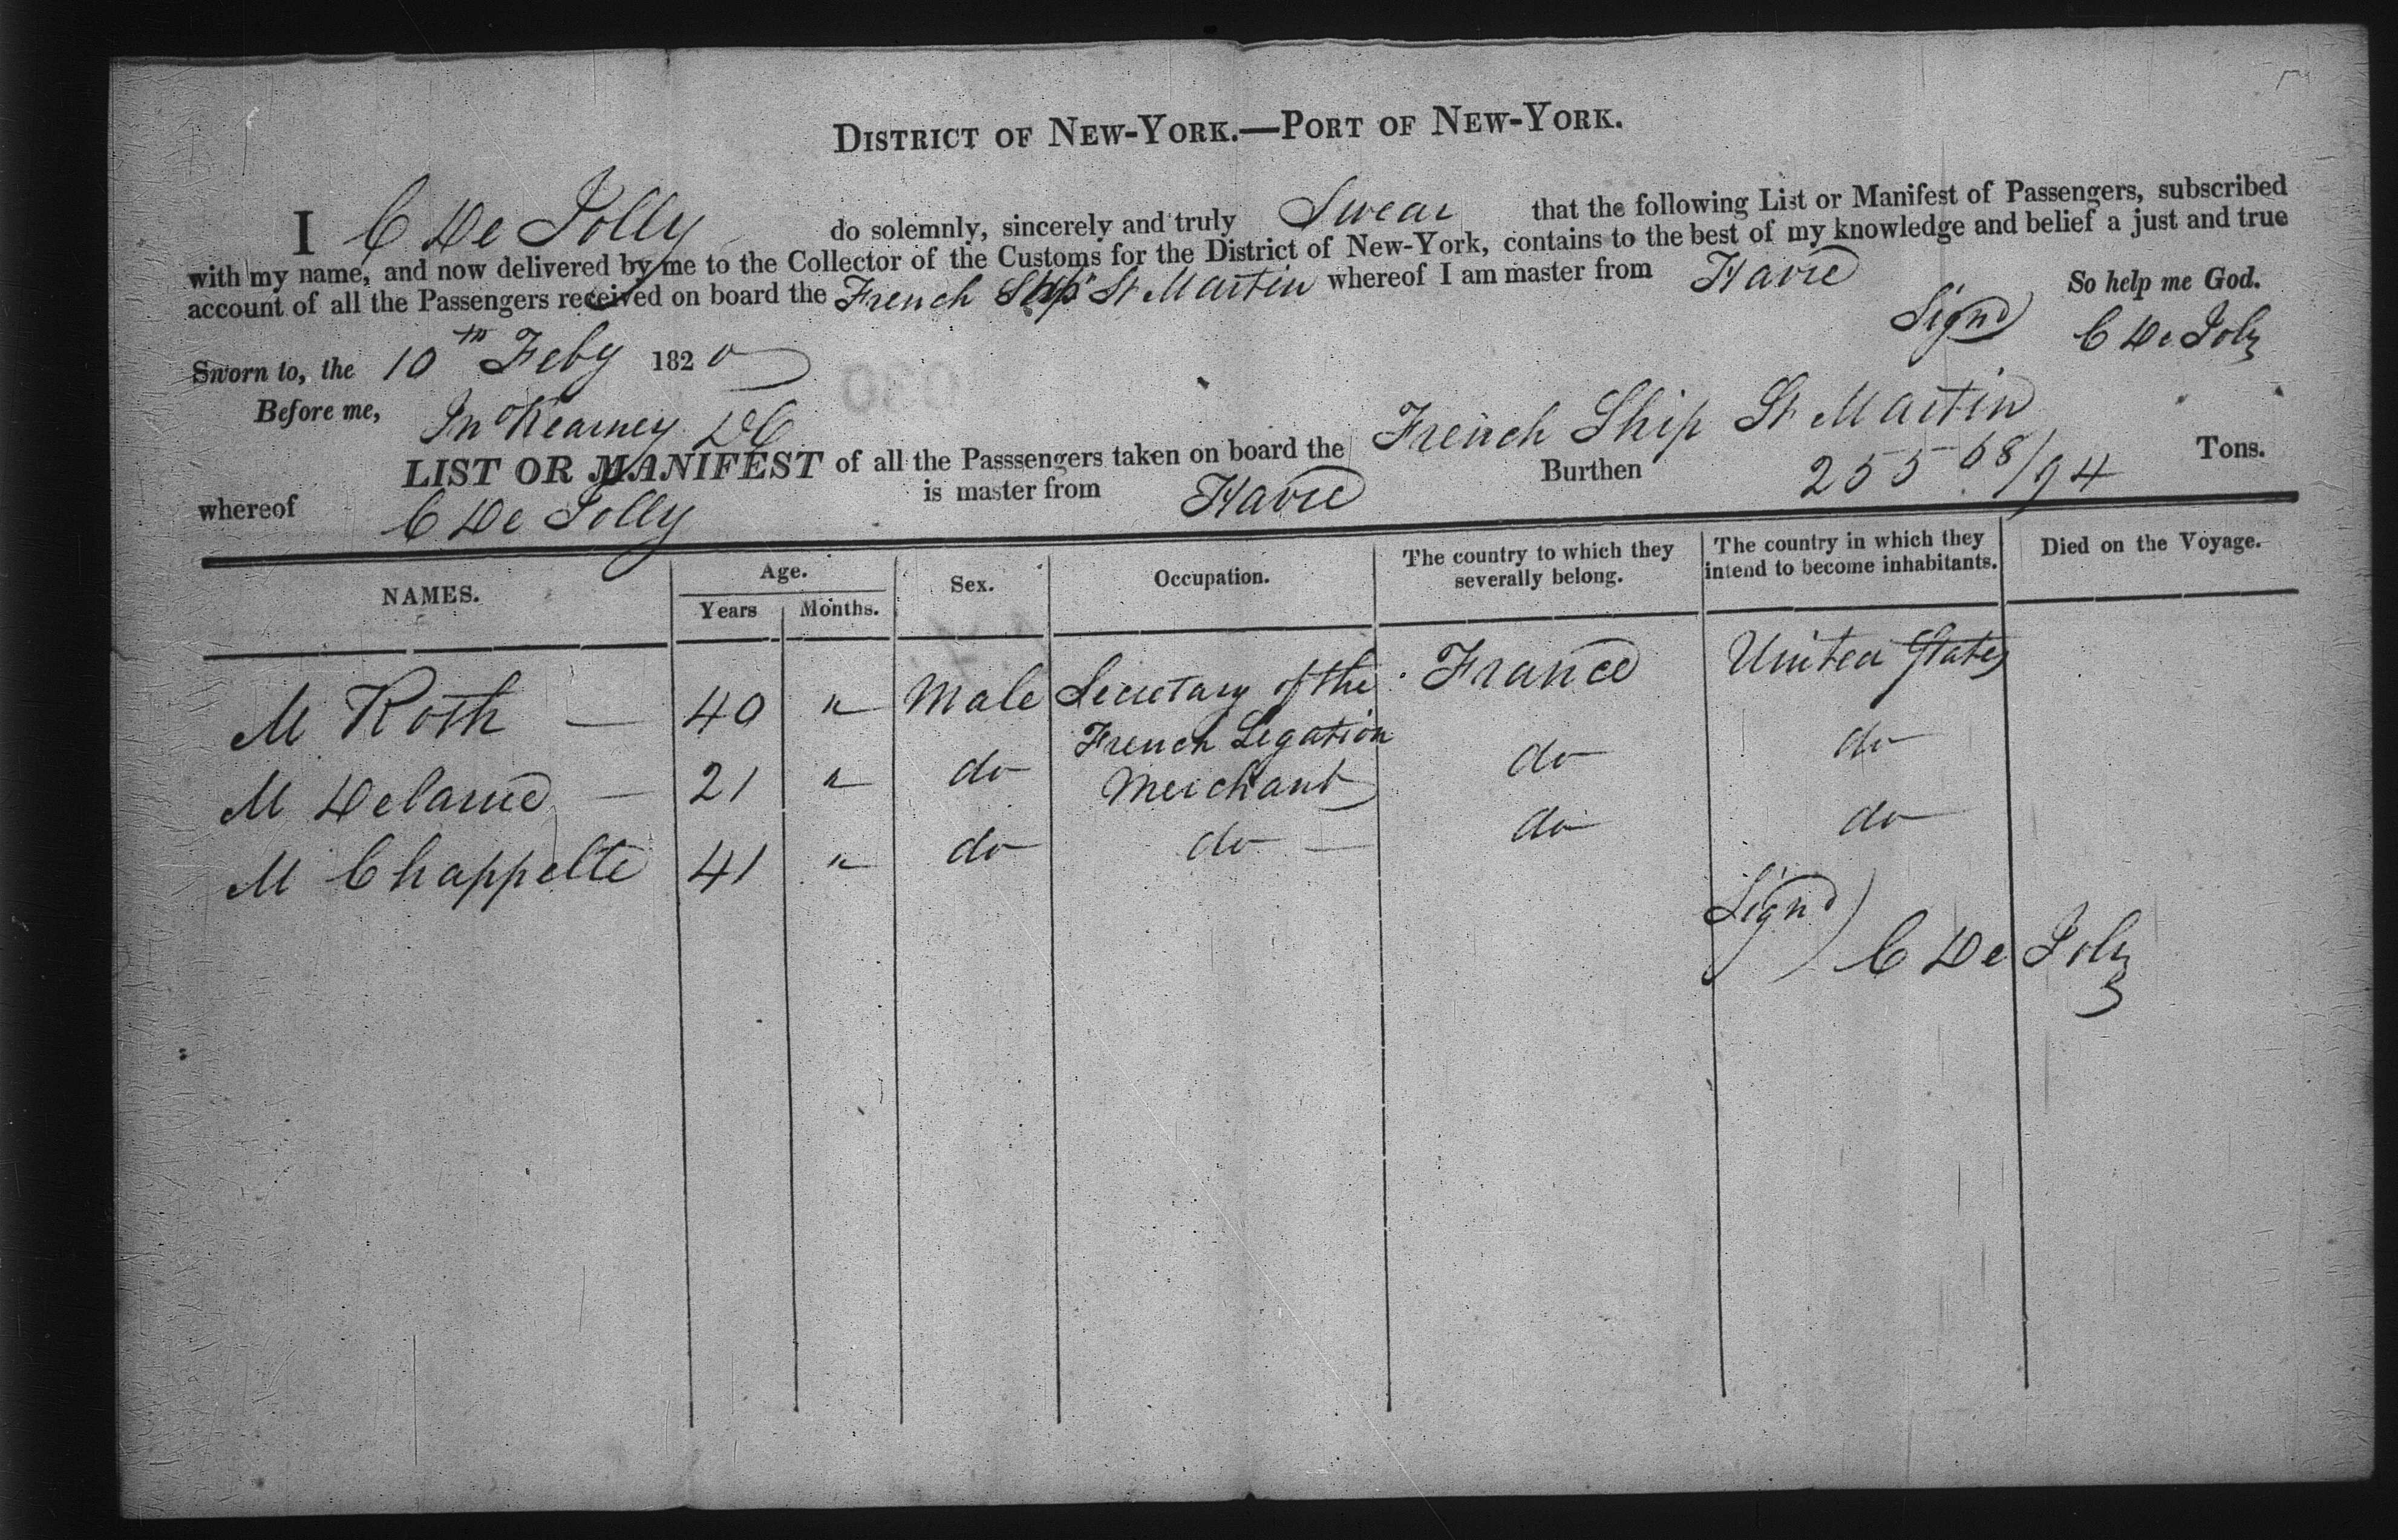 DISTRICT OF NEW-YORK.—PORT OF NEW-YORK.
I C De Jolly do solemnly, sincerely and truly Swear that the following List or Manifest of Passengers, subscribed
with my name, and now delivered by me to the Collector of the Customs for the District of New-York, contains to the best of my knowledge and belief a just and true
account of all the Passengers received on board the French Ship St Martin whereof I am master from Havre
So help me God.
Sign'd C De Joly
Sworn to, the 10th Feby 1820
Before me, Jn Kearney DC
LIST OR MANIFEST of all the Passsengers taken on board the French Ship St Martin
Burthen 255 68/94 Tons.
whereof C De Jolly is master from Havre
NAMES. Age. Years Months. Sex. Occupation. The country to which they severally belong. The country in which they intend to become inhabitants. Died on the Voyage.
M Roth — 40 " Male Secretary of the French Legation France United States
M Delarue — 21 " do Merchant do do
M Chappelle 41 " do do — do do
Sign'd) C De Joly